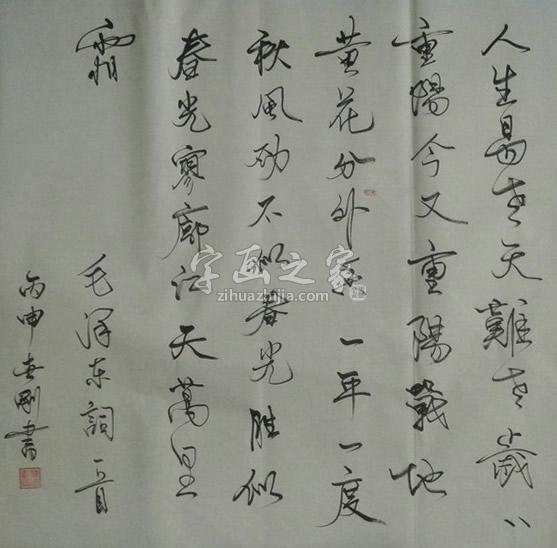 人生易老天難老歲〻
重陽今又重陽戰地
黄花分外香一年一度
秋風劲不似春光胜似
春光寥廓江天萬里
霜
毛泽东詞一首
丙申志刚書
字画之家
zihuazhijia.com